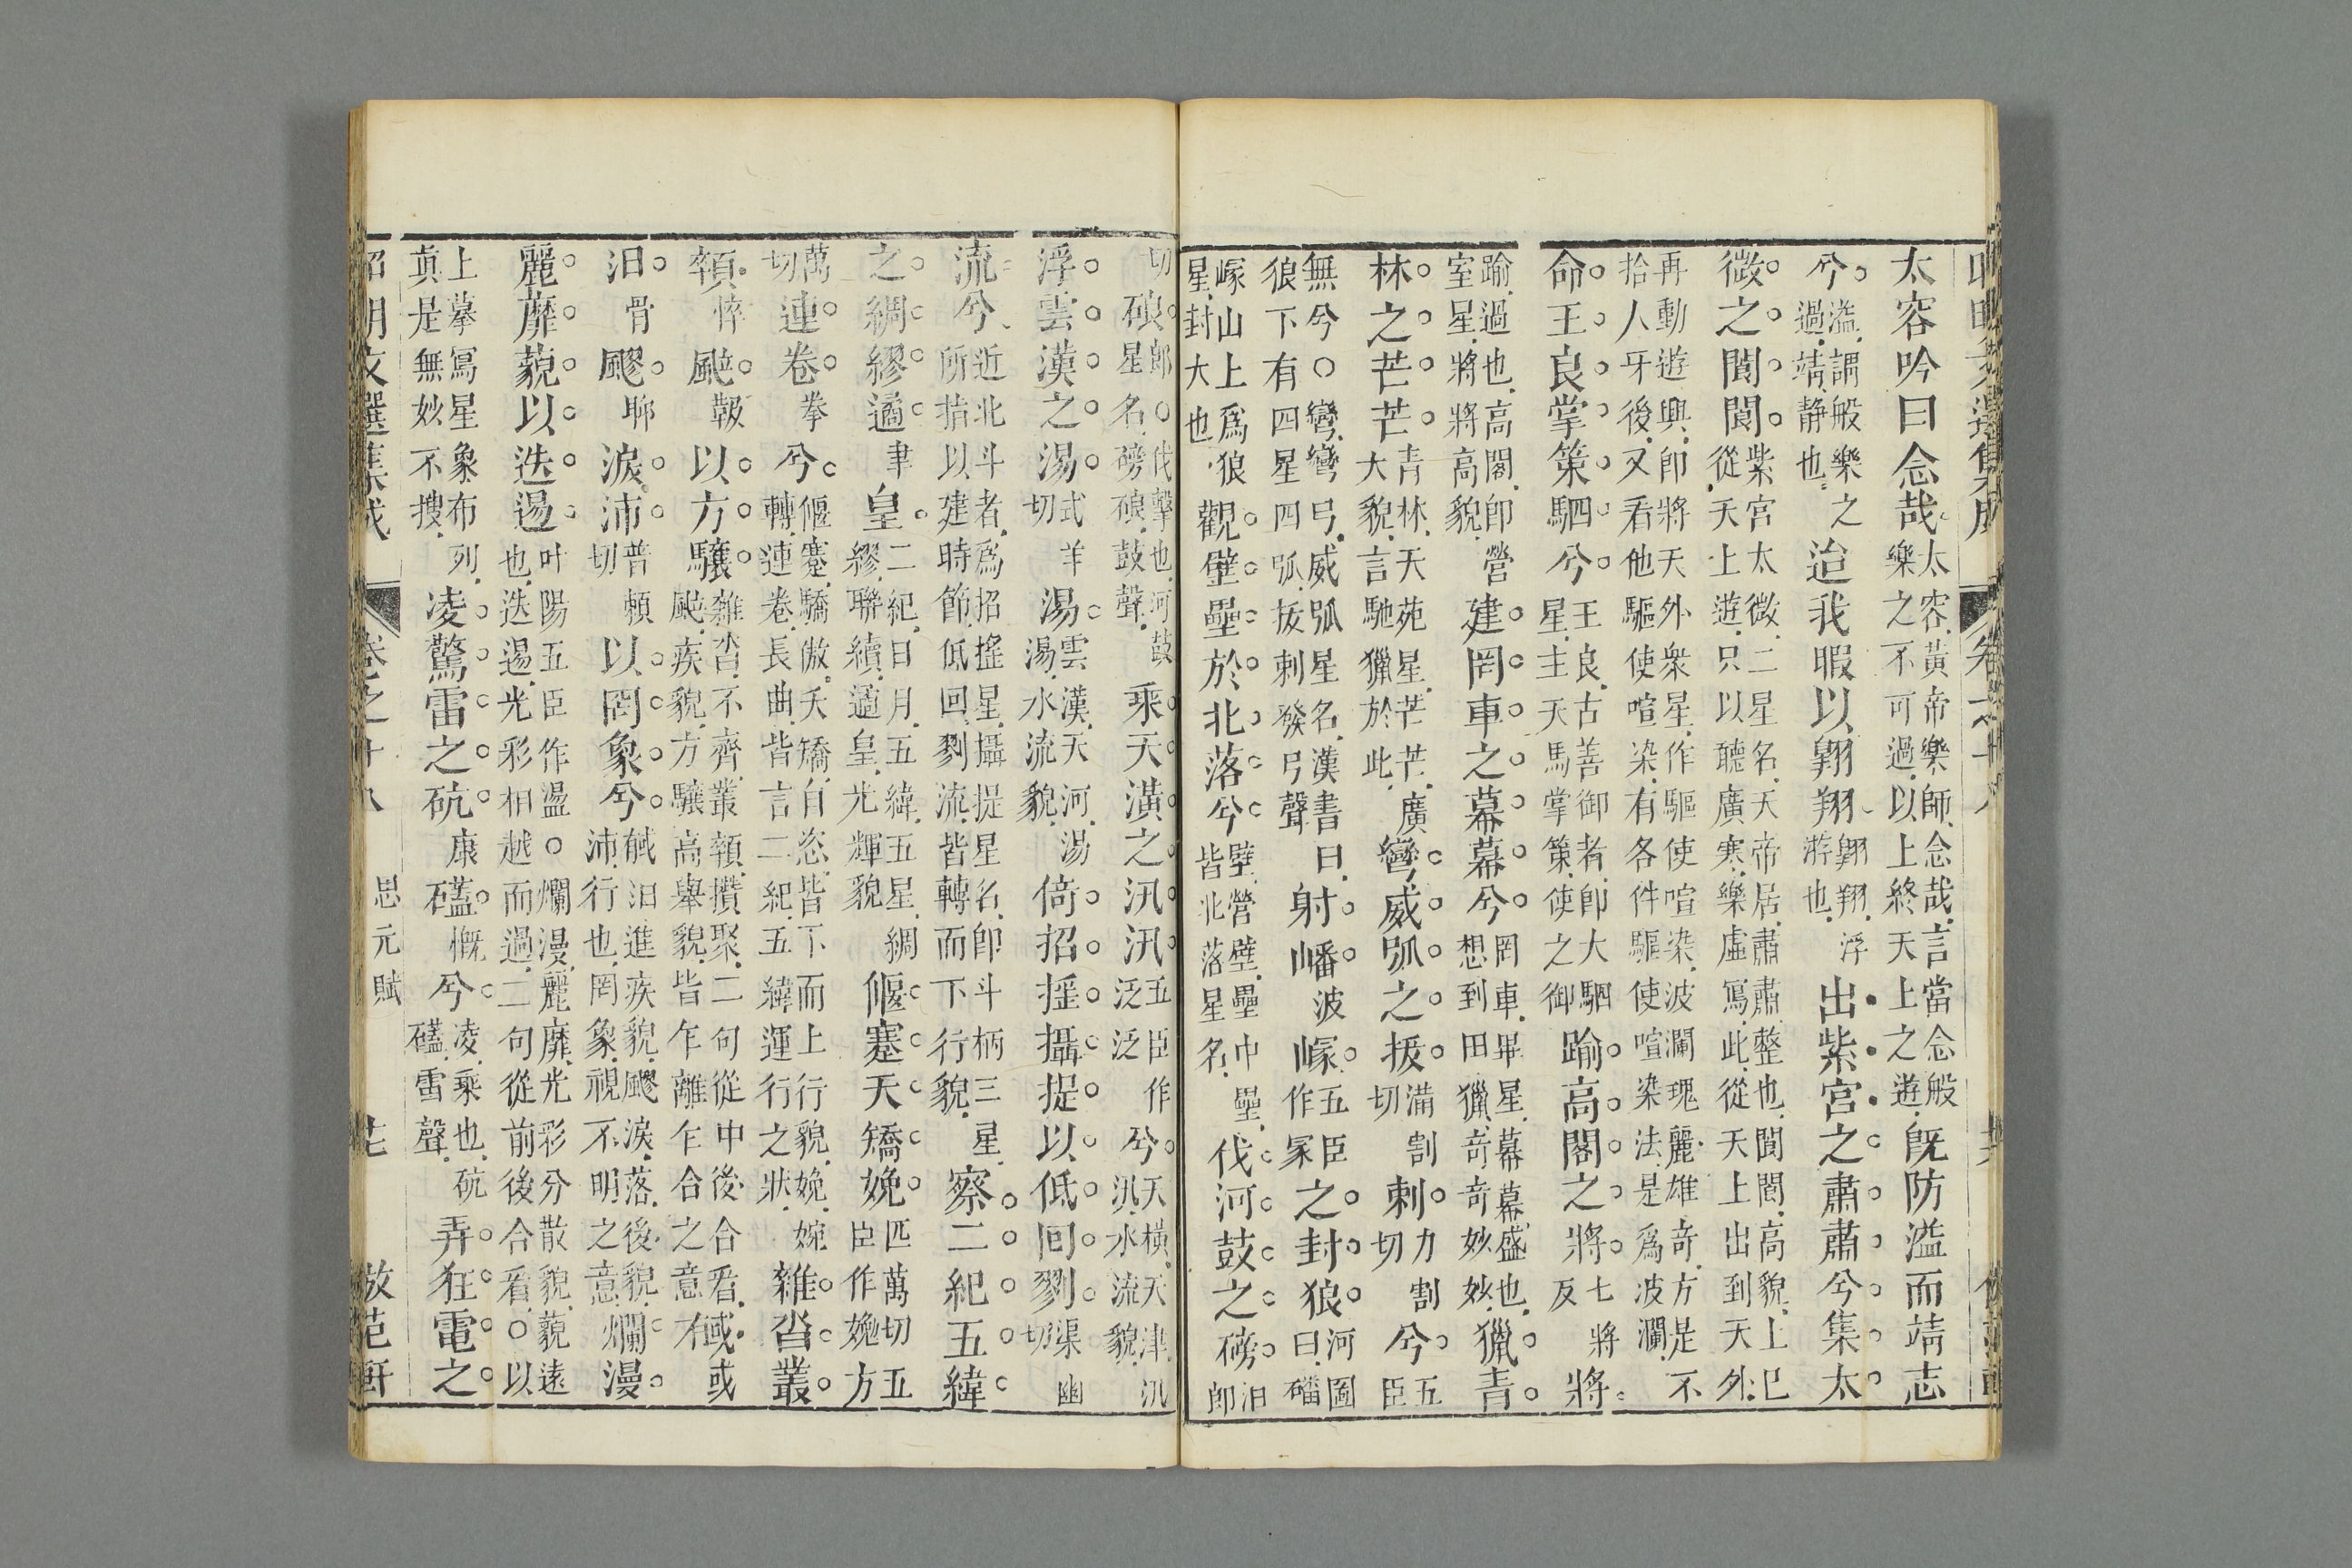 太容吟曰念哉太容黃帝樂師念哉言當念般樂之不可過以上終天上之遊旣防溢而靖志
兮溢謂般樂之過靖静也迨我暇以翺翔翺翔浮游也出紫宮之肅肅兮集太
微之閬閬紫宮太微二星名天帝居肅肅整也閬閬高貌上巳從天上遊只以聽廣寒樂虛寫此從天上出到天外
再動遊興卽將天外衆星作驅使喧染波瀾瑰麗雄奇方是不拾人牙後又看他驅使喧染有各件驅使喧染法是爲波瀾
命王良掌策駟兮王良古善御者卽大駟星主天馬掌策使之御踰高閣之將七將反將
踰過也高閣卽營室星將將高貌建罔車之幕幕兮罔車畢星幕幕盛也想到田獵奇奇妙妙獵青
林之芒芒青林天苑星芒芒廣大貌言馳獵於此彎威弧之拔滿割切刺力割切兮五臣
無兮○彎彎弓威弧星名漢書曰狼下有四星四弧拔刺發弓聲射嶓波冢五臣作冢之封狼河圖曰嶓
冢山上爲狼星封大也觀壁壘於北落兮壁營壁壘中壘皆北落星名伐河鼓之磅汨卽
切硠郎○伐擊也河鼓星名磅硠鼓聲乘天潢之汎汎五臣作泛泛兮天橫天津汎汎水流貌
浮雲漢之湯式羊切湯雲漢天河湯湯水流貌倚招搖攝提以低回剹渠幽切
流兮近北斗者爲招搖星攝提星名卽斗柄三星所指以建時節低回剹流皆轉而下行貌察二紀五緯
之綢繆遹聿皇二紀日月五緯五星綢繆聯續遹皇光輝貌偃蹇夭矯娩匹萬切五臣作㝃方
萬切連卷拳兮偃蹇驕傲夭矯自恣皆下而上行貌娩婉轉連卷長曲皆言二紀五緯運行之狀雜沓叢
顇悴颯靸以方驤雜沓不齊叢顇攢聚二句從中後合看颯疾貌方驤高舉貌皆乍離乍合之意戫或
汨骨飂聊淚沛普賴切以罔象兮戫汨進疾貌飂淚落後貌沛行也罔象視不明之意爛漫
麗靡藐以迭逷叶陽五臣作盪○爛漫麗靡光彩分散貌藐遠也迭逷光彩相越而過二句從前後合看○以
上摹寫星象布列眞是無妙不搜凌驚雷之砊康礚慨兮凌乘也砊礚雷聲弄狂電之
昭明文選集成 卷之十八 思元賦